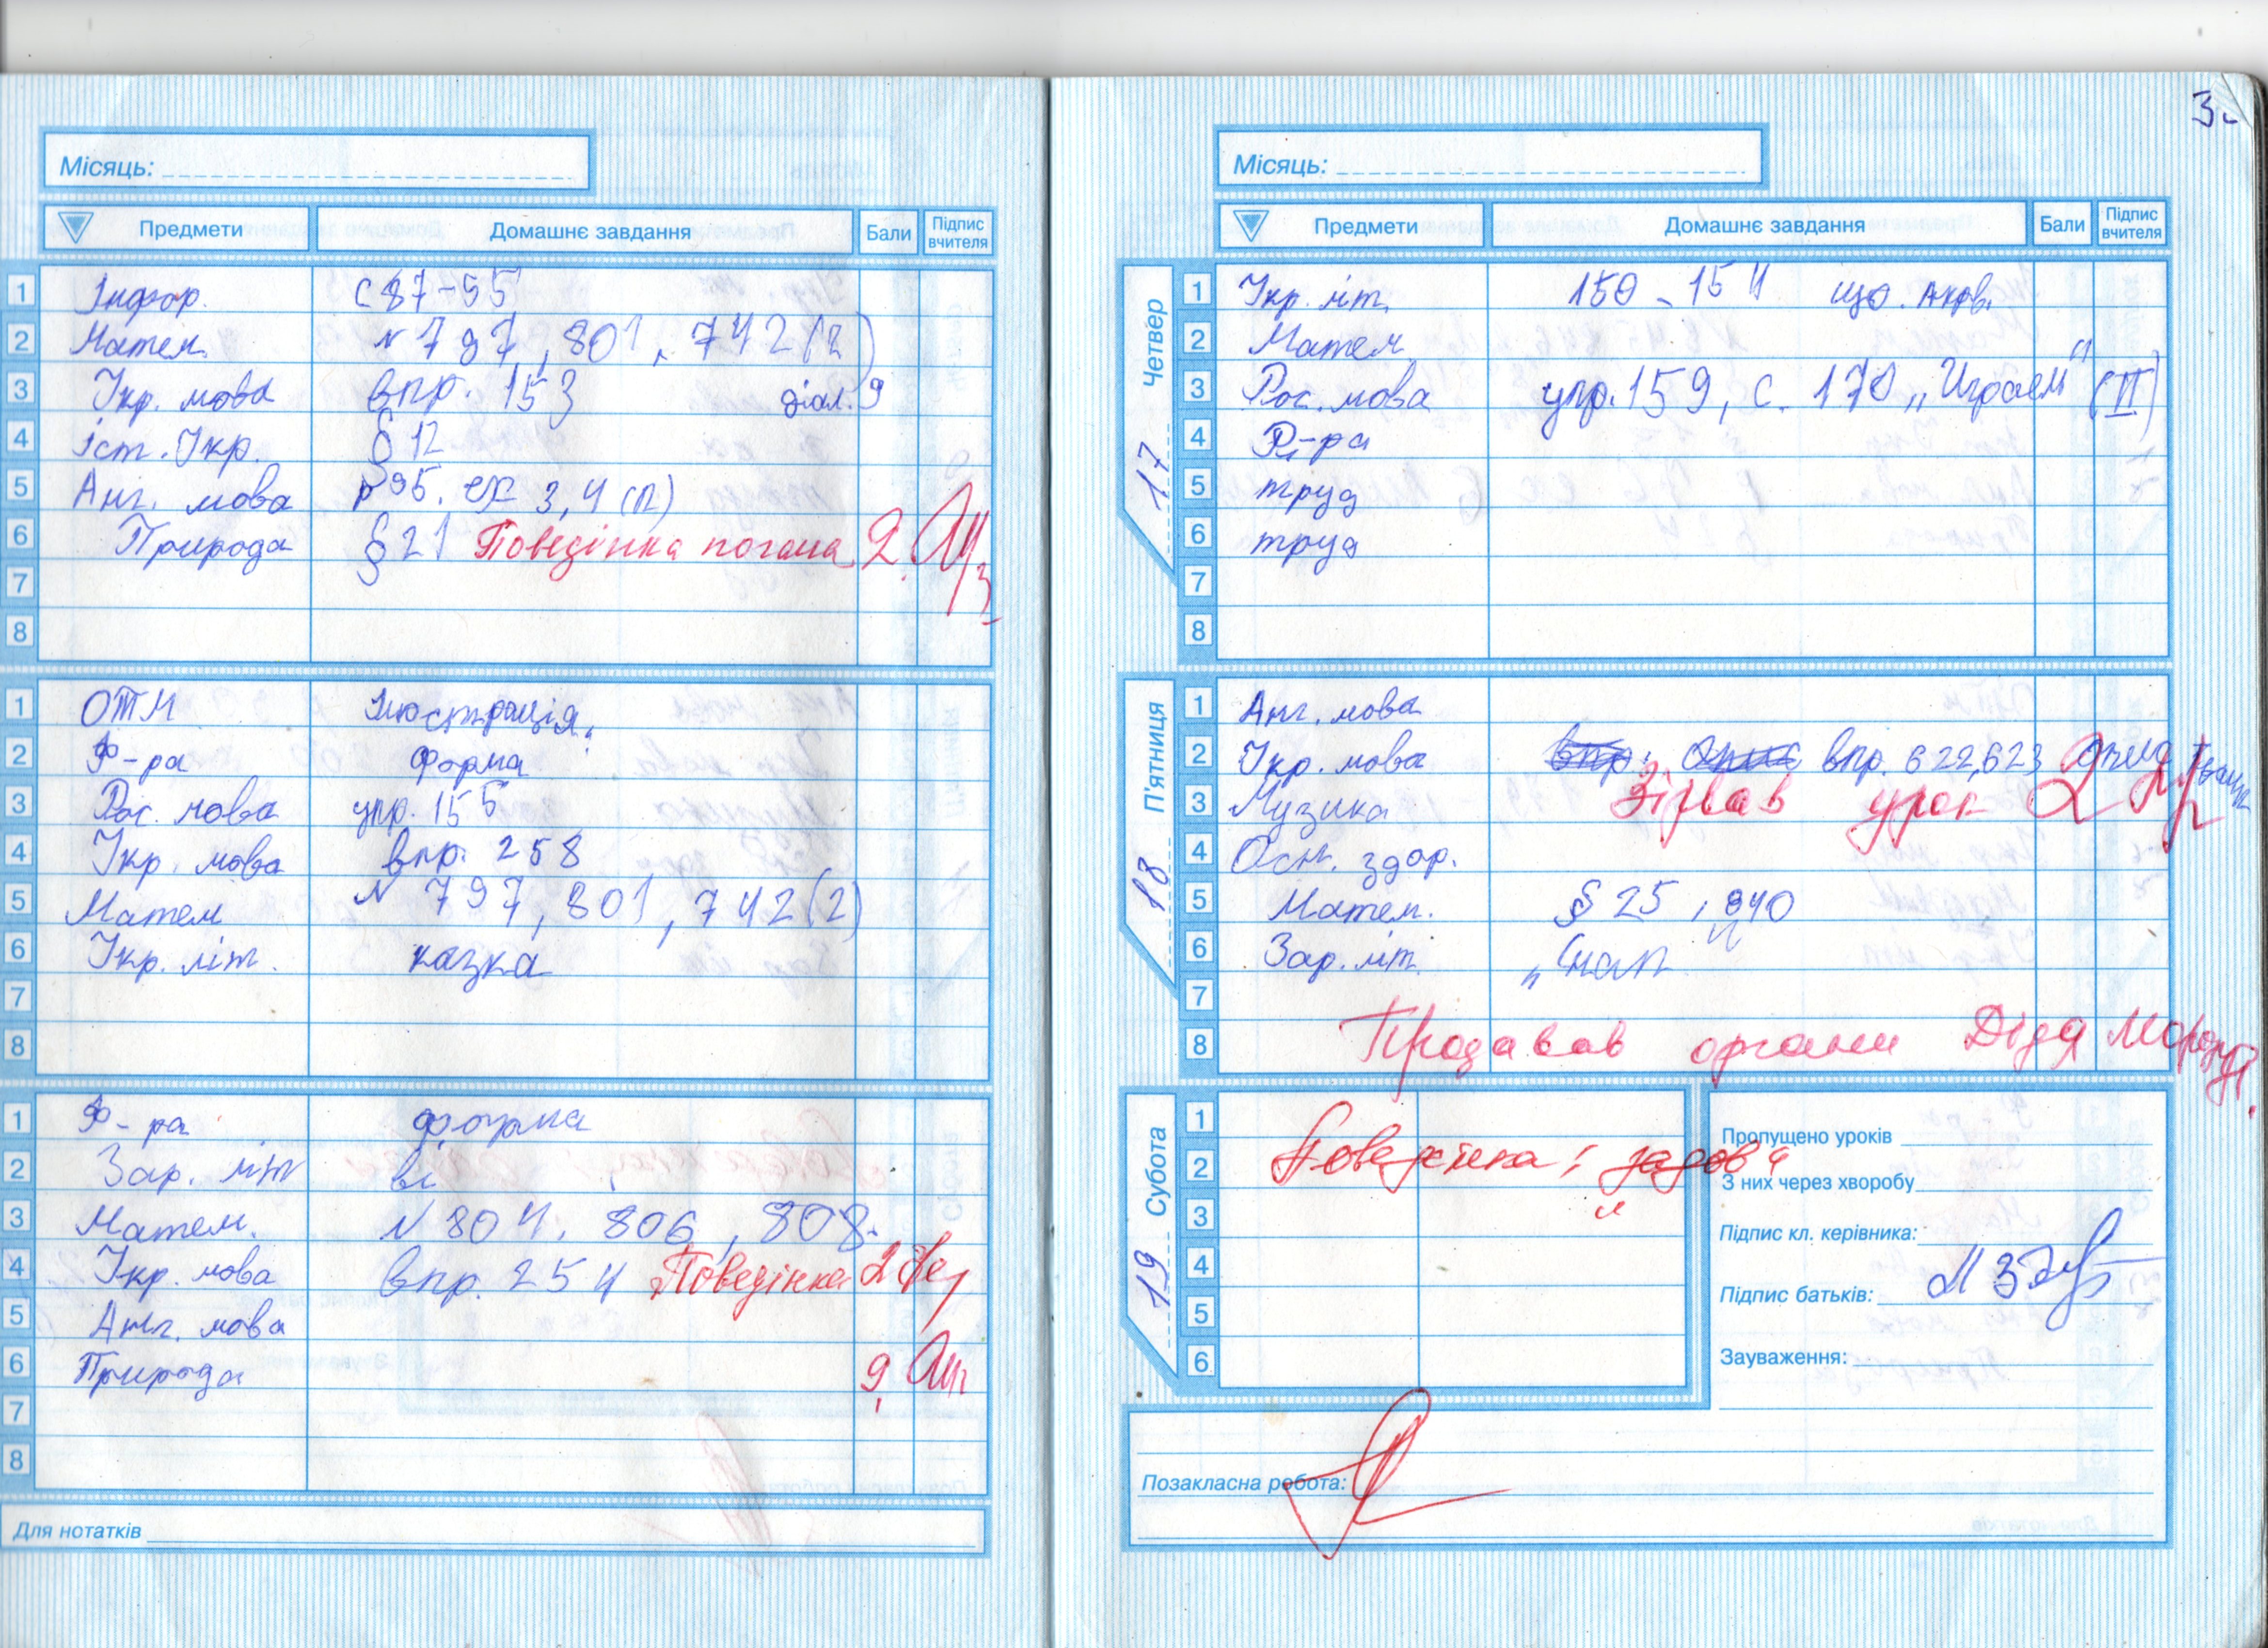 3
Місяць:
Предмети Домашнє завдання Бали Підпис вчителя
1 Інфор. с 87-95
2 Матем. № 797, 801, 742(2)
3 Укр. мова впр. 153 діал. 9
4 Іст. Укр. § 12
5 Анг. мова p 95. ex 3,4 (п)
6 Природа § 21 Поведінка погана 2
7
8
1 ОТМ
2 Ф-ра Форма
3 Рос. мова упр. 155
4 Укр. мова впр. 258
5 Матем № 797, 801, 742(2)
6 Укр. літ. казка
7
8
1 Ф-ра форма
2 Зар. літ ві
3 Матем. № 804, 806, 808.
4 Укр. мова впр. 254 Поведінка 2
5 Анг. мова
6 Природа 9
7
8
Для нотатків
Місяць:
Предмети Домашнє завдання Бали Підпис вчителя
Четвер 17
1 Укр. літ. 150-154
2 Матем
3 Рос. мова упр. 159, с. 170 „Играем" (II)
4 Ф-ра
5 труд
6 труд
7
8
П'ятниця 18
1 Анг. мова
2 Укр. мова впр. 622,623
3 Музика Зірвав урок 2
4 Осн. здор.
5 Матем. § 25, 840
6 Зар. літ.
7
8 Продавав органи Діда Мороза.
Субота 19
1
2 Поведінка: задов.
3
4
5
6
Пропущено уроків
З них через хворобу
Підпис кл. керівника:
Підпис батьків:
Зауваження:
Позакласна робота: